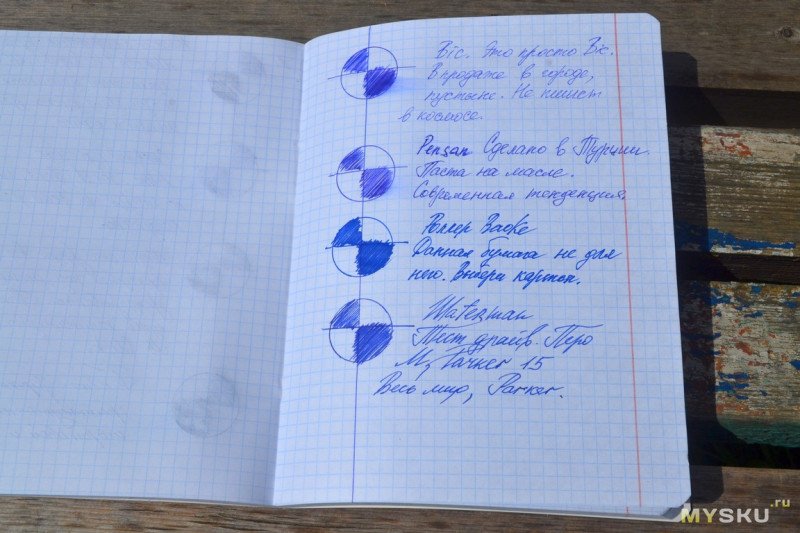 Bic. Это просто Bic.
В продаже в городе,
пустыне. Не пишет
в космосе.
Pensan Сделано в Турции.
Паста на масле.
Современная тенденция.
Роллер Baoke
Данная бумага не для
него. Выбери картон.
Waterman
Тест драйв. Перо
М, Parker 15
Весь мир, Parker.
MYSKU.ru